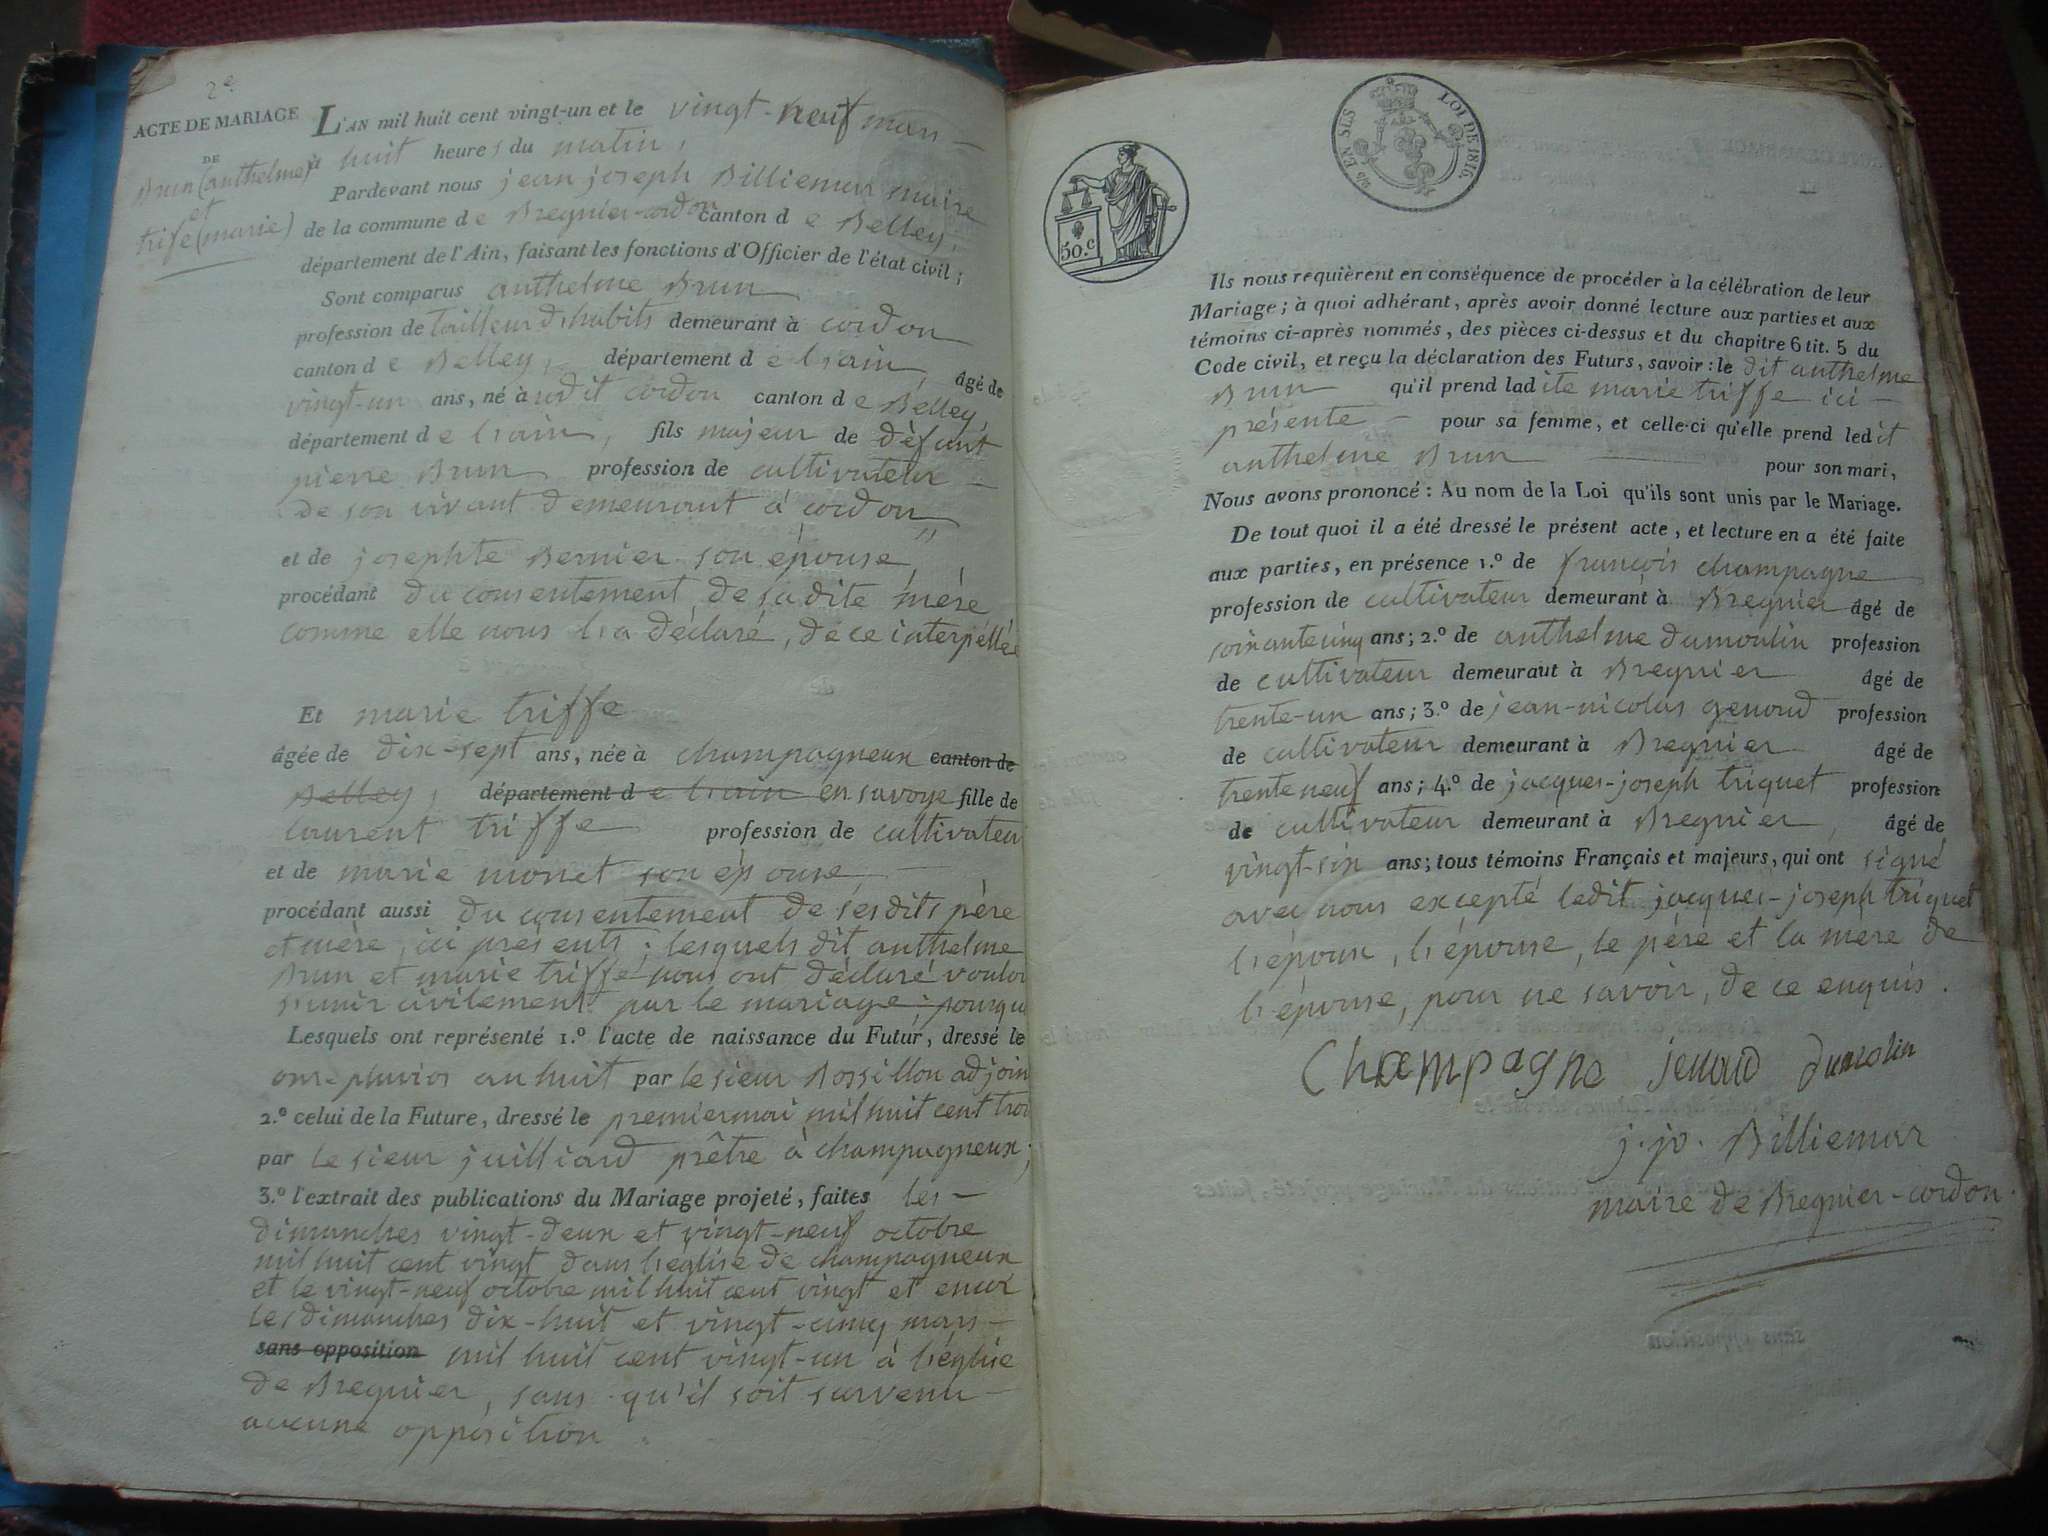 2.e
ACTE DE MARIAGE
DE
Brun (anthelme)
et
trife (marie)
L'AN mil huit cent vingt-un et le vingt-neuf mars
à huit heures du matin,
Pardevant nous jean joseph Billiemar maire
de la commune de Bregnier-cordon canton de Belley,
département de l'Ain, faisant les fonctions d'Officier de l'état civil;
Sont comparus anthelme Brun
profession de tailleur d'habits demeurant à cordon
canton de Belley, département de l'ain, âgé de
vingt-un ans, né à udit cordon canton de Belley,
département de l'ain, fils majeur de défunt
pierre Brun profession de cultivateur
de son vivant demeurant à cordon
et de josephte Bernier son épouse,
procédant du consentement de sadite mère
comme elle nous l'a déclaré, de ce interpellée
Et marie triffe
âgée de dix-sept ans, née à champagneux canton de
Belley, département de l'ain en savoye fille de
laurent triffe profession de cultivateur
et de marie monet son épouse,
procédant aussi du consentement de sesdits père
et mère, ici présents; lesquels dit anthelme
Brun et marie triffe nous ont déclaré vouloi
s'unir civilement par le mariage; pourqu
Lesquels ont représenté 1.º l'acte de naissance du Futur, dressé le
onze pluvios an huit par le sieur Rossillon adjoin
2.º celui de la Future, dressé le premier mai mil huit cent troi
par le sieur juilliard prêtre à champagneux;
3.º l'extrait des publications du Mariage projeté, faites les
dimanches vingt-deux et vingt-neuf octobre
mil huit cent vingt dans l'eglise de champagneux
et le vingt-neuf octobre mil huit cent vingt et encor
les dimanches dix-huit et vingt-cinq mars
sans opposition mil huit cent vingt-un à l'église
de Bregnier, sans qu'il soit survenu
aucune opposition.
50.c
LOI DE 1816.
EN SUS
Ils nous requièrent en conséquence de procéder à la célébration de leur
Mariage; à quoi adhérant, après avoir donné lecture aux parties et aux
témoins ci-après nommés, des pièces ci-dessus et du chapitre 6 tit. 5 du
Code civil, et reçu la déclaration des Futurs, savoir: le dit anthelme
Brun qu'il prend ladite marie triffe ici
présente pour sa femme, et celle-ci qu'elle prend ledit
anthelme Brun pour son mari,
Nous avons prononcé: Au nom de la Loi qu'ils sont unis par le Mariage.
De tout quoi il a été dressé le présent acte, et lecture en a été faite
aux parties, en présence 1.º de françois champagne
profession de cultivateur demeurant à Bregnier âgé de
soixante cinq ans; 2.º de anthelme dumoulin profession
de cultivateur demeurant à Bregnier âgé de
trente-un ans; 3.º de jean-nicolas genoud profession
de cultivateur demeurant à Bregnier âgé de
trente neuf ans; 4.º de jacques-joseph triquet profession
de cultivateur demeurant à Bregnier, âgé de
vingt-six ans; tous témoins Français et majeurs, qui ont signé
avec nous excepté ledit jacques-joseph triquet
l'époux, l'épouse, le père et la mère de
l'épouse, pour ne savoir, de ce enquis.
Champagne jenoud dumolin
j. jo. Billiemar
maire de Bregnier-cordon.